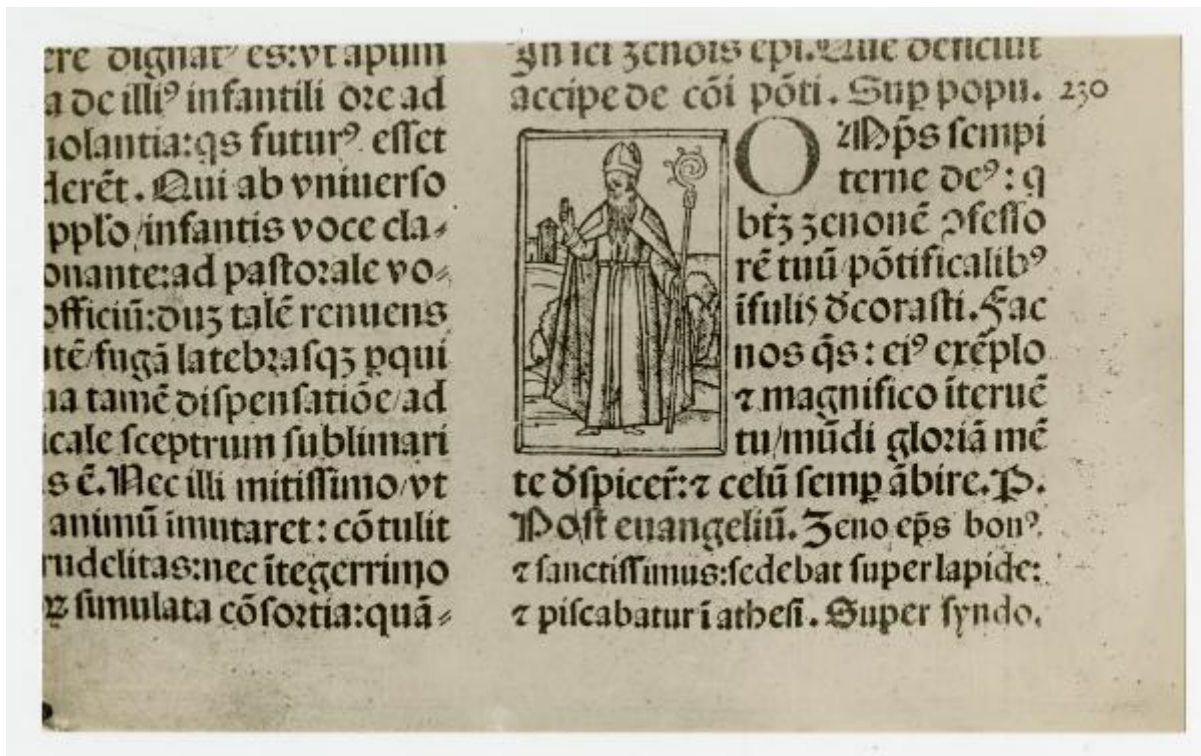 ere dignat⁹ es:vt apum
a de illi⁹ infantili ore ad
iolantia:qs futur⁹ esset
derēt. Qui ab vniuerso
pplo/infantis voce cla⸗
onante:ad pastorale vo⸗
officiū:duȝ talē renuens
itē/fugā latebꝛasqȝ ꝑqui
na tamē dispensatiōe/ad
icale sceptrum sublimari
s ē. Nec illi mitissimo/vt
animū imutaret: cōtulit
rudelitas:nec ītegerrimo
simulata cōsortia:quā⸗
In sci zenōis epi. Que deficiūt
accipe de cōi pōti. Suꝑ popu. 230
OMp̄s sempi
terne de⁹: q
btȝ zenonē ↄfesso
rē tuū pōtificalib⁹
īfulis dcorasti. Fac
nos q̄s: ei⁹ exēplo
⁊ magnifico īteruē
tu/mūdi gloriā mē
te dspicer̄:⁊ celū semꝑ ābire. P.
Post euangeliū. Zeno ep̄s bon⁹.
⁊ sanctissimus:sedebat super lapide:
⁊ piscabatur ī athesi. Super syndo.